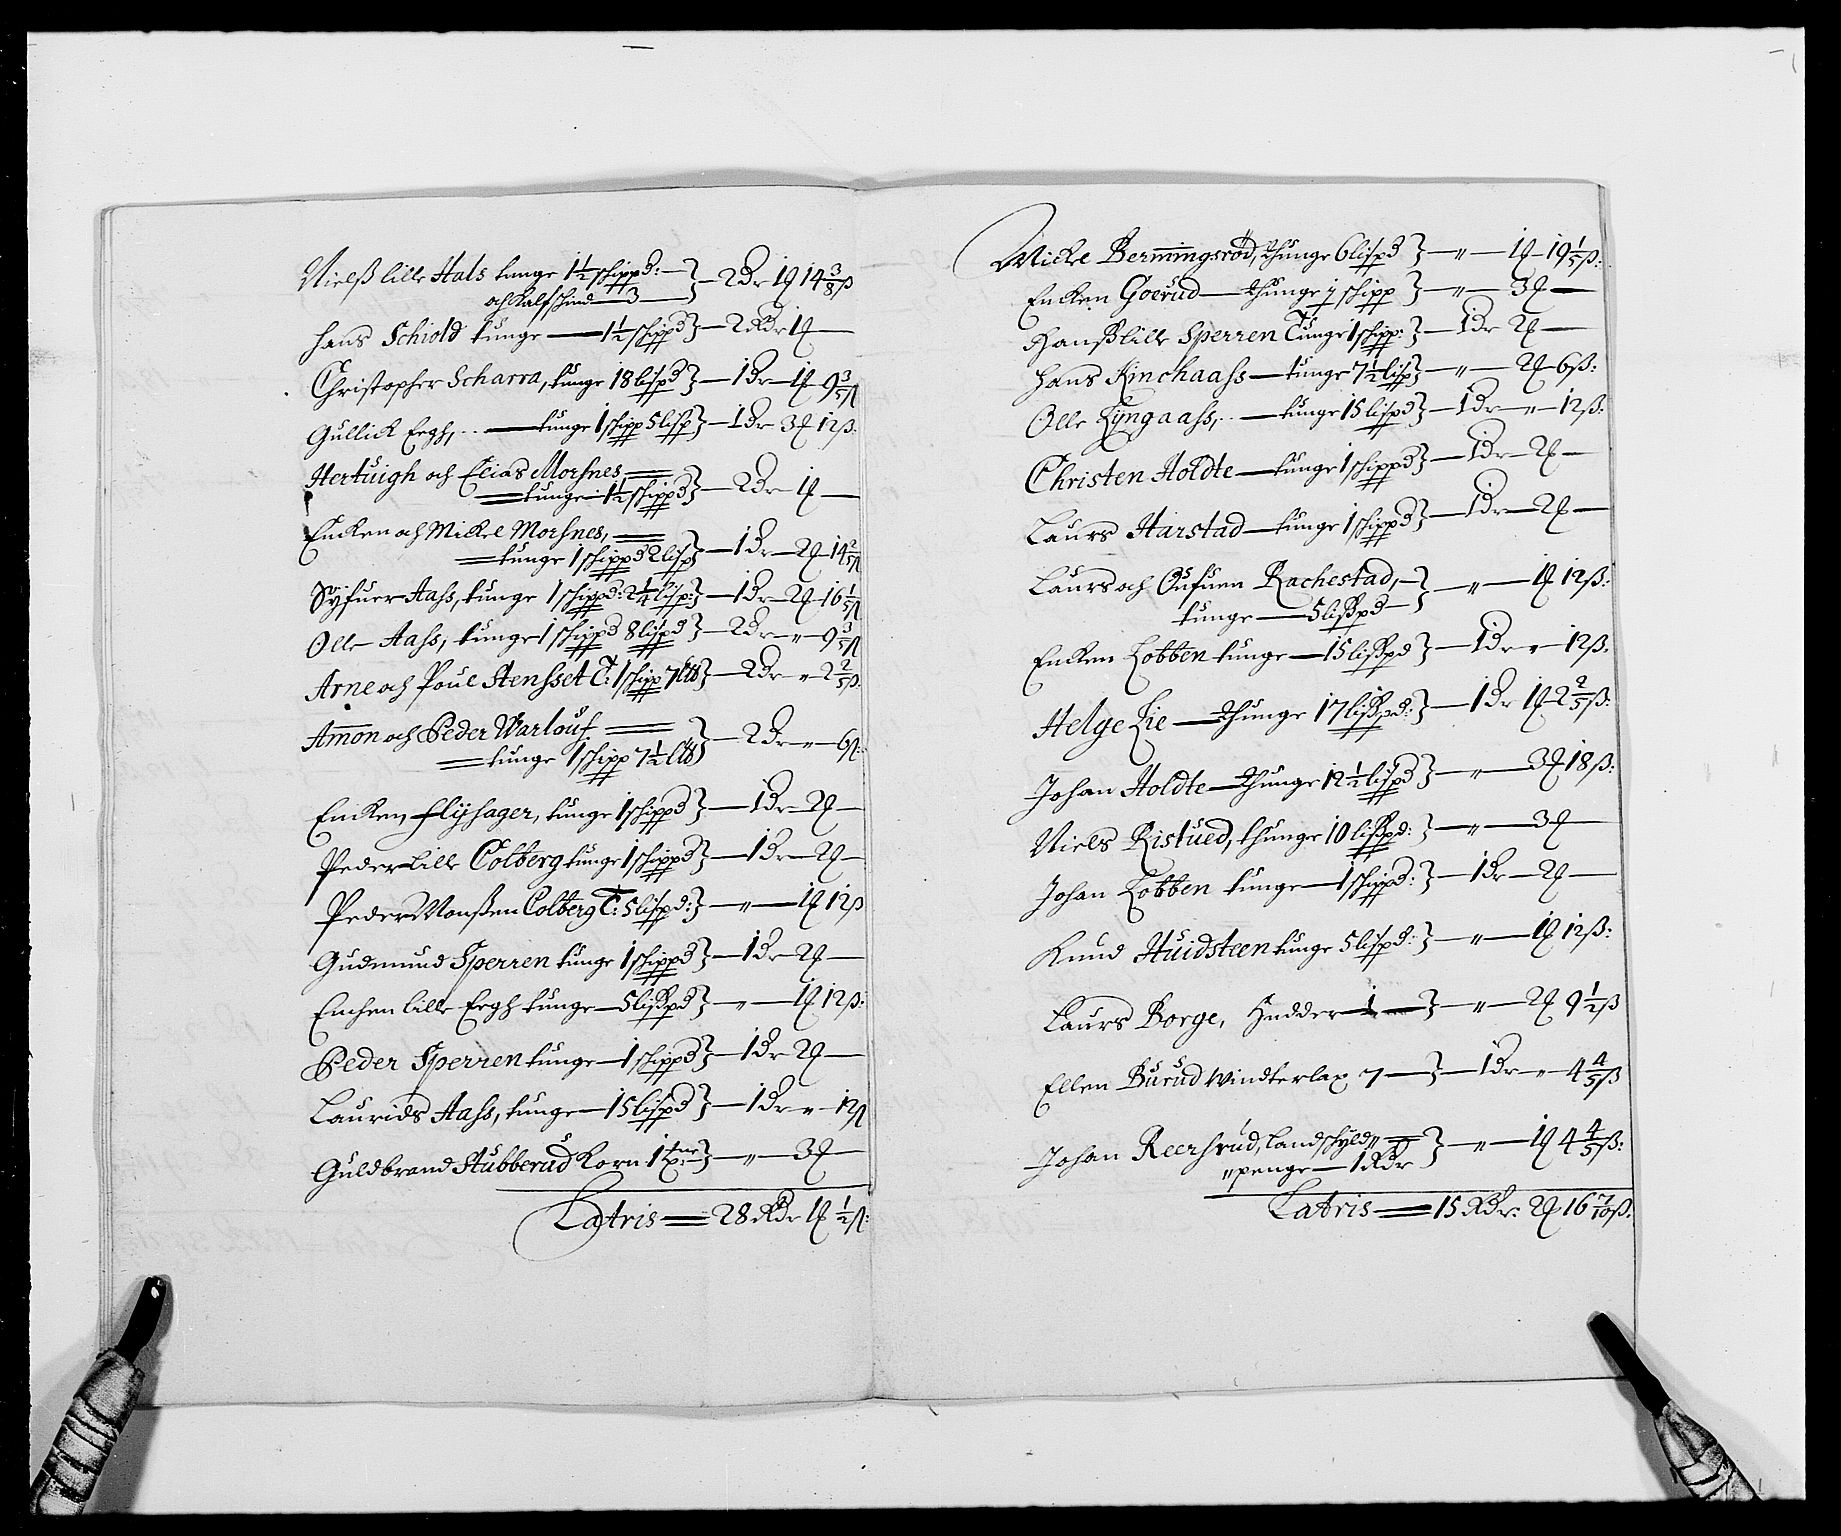 Nielß lille Hals tunge 1½ schippd: } — 2 Dr 1 ꝗ 14⅜ ß
och Kalfschind — 3 —
Hans Schiold tunge — 1½ schippd } — 2 RDr 1 ꝗ —
Christopher Scharra, tunge 18 lispd } — 1 Dr — 1 ꝗ 9⅗ ß
Gullick Eegh, — tunge 1 schipp 5 lisp } — 1 Dr 3 ꝗ 12 ß.
Hertuigh och Elias Morsnes
— tunge — 1½ schippd } — 2 Dr 1 ꝗ —
Encken och Mickel Morsnes,
— tunge 1 schippd 2 lisp } — 1 Dr — 2 ꝗ — 14⅖ ß
Syfuer Aass, tunge 1 schippd: 2¼ lisp: } — 1 Dr — 2 ꝗ — 16⅕ ß
Olle Aass, tunge 1 schippd 8 lispd } — 2 Dr — „ — 9⅗ ß
Arne och Poul Stensset T: 1 schipp 7 l℔ } — 2 Dr — „ 2⅖ ß:
Amon och Peder Warlouf
— tunge 1 schipp 7½ l℔ } — 2 Dr — „ — 6 ß:
Encken Flyhager, tunge 1 schippd } — 1 Dr — 2 ꝗ —
Peder Lille Colberg tunge 1 schippd } — 1 Dr — 2 ꝗ —
Peder Monßen Colberg T: 5 lispd: } — „ — 1 ꝗ 12 ß
Gudmund Sperren tunge 1 schippd } — 1 Dr — 2 ꝗ —
Enchen lille Eegh tunge — 5 lißpd } — „ — 1 ꝗ 12 ß:
Peder Sperren tunge — 1 schippd } — 1 Dr 2 ꝗ —
Laurids Aass, tunge — 15 lispd } — 1 Dr — „ — 12 ß
Guldbrand Stubberud Korn 1 tne } — „ — 3 ꝗ —
Latris — 28 RDr 1 ꝗ ½ ß:
Mickel Bermingsrød, thunge 6 lispd } — „ — 1 ꝗ — 19⅕ ß:
Encken Goerud — thunge ½ schipp } — „ — 3 ꝗ —
Hanß lille Sperren Tunge 1 schipp: } — 1 Dr 2 ꝗ —
Hans Kinchaass — tunge 7½ lisp } — „ — 2 ꝗ — 6 ß:
Olle Lyngaass, — tunge 15 lispd } — 1 Dr — „ — 12 ß:
Christen Holdte — tunge 1 schippd } — 1 Dr — 2 ꝗ —
Laurs Harstad — tunge 1 schippd } — 1 Dr — 2 ꝗ —
Laurs och Oufuen Rachestad, — } — „ — 1 ꝗ 12 ß:
tunge — 5 lißpd —
Encken Lobben tunge — 15 lißpd } — 1 Dr — „ — 12 ß.
Helge Lie — thunge 17 lißpd: } — 1 Dr 1 ꝗ 2⅖ ß:
Johan Holdte — thunge 12½ lispd } — „ — 3 ꝗ 18 ß:
Niels Ristued, thunge 10 lißpd: } — „ — 3 ꝗ —
Johan Lobben tunge — 1 schippd: } — 1 Dr — 2 ꝗ —
Knud Huidsteen tunge 5 lispd: } — „ — 1 ꝗ 12 ß:
Laurs Borge, Hudder — 1 — } — „ — 2 ꝗ 9½ ß
Ellen Burud Windterlax 7 — } — 1 Dr — „ 4⅘ ß
Johan Reersrud, Landschyld „ } — „ — 1 ꝗ 4⅘ ß:
„ penge — 1 RDr
Latris — 15 RDr: 2 ꝗ 16 7/10 ß: